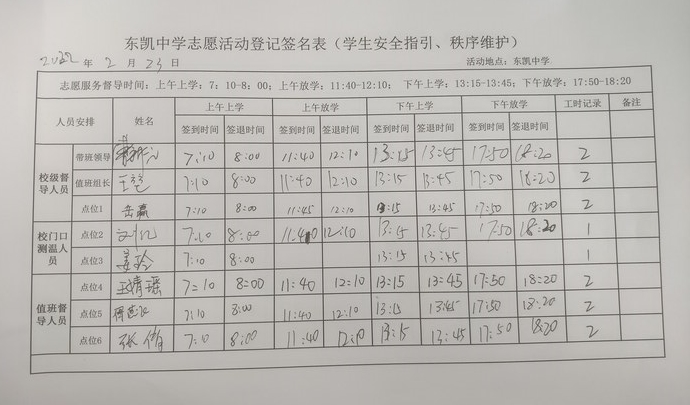 东凯中学志愿活动登记签名表（学生安全指引、秩序维护）
2022 年 2 月 23 日 活动地点：东凯中学
志愿服务督导时间：上午上学：7：10-8：00；上午放学：11:40-12:10； 下午上学：13:15-13:45；下午放学：17:50-18:20
人员安排 姓名 上午上学 上午放学 下午上学 下午放学 工时记录 备注
签到时间 签退时间 签到时间 签退时间 签到时间 签退时间 签到时间 签退时间
校级督导人员 带班领导 7:10 8:00 11:40 12:10 13:15 13:45 17:50 18:20 2
值班组长 7:10 8:00 11:40 12:10 13:15 13:45 17:50 18:20 2
点位1 岳赢 7:10 8:00 11:45 12:10 13:15 13:45 17:50 18:20 2
校门口测温人员 点位2 7:10 8:00 11:40 12:10 13:15 13:45 17:50 18:20 1
点位3 姜玲 7:10 8:00 13:15 13:45 1
值班督导人员 点位4 王婧瑶 7:10 8:00 11:40 12:10 13:15 13:45 17:50 18:20 2
点位5 7:10 8:00 11:40 12:10 13:15 13:45 17:50 18:20 2
点位6 张倩 7:10 8:00 11:40 12:10 13:15 13:45 17:50 18:20 2